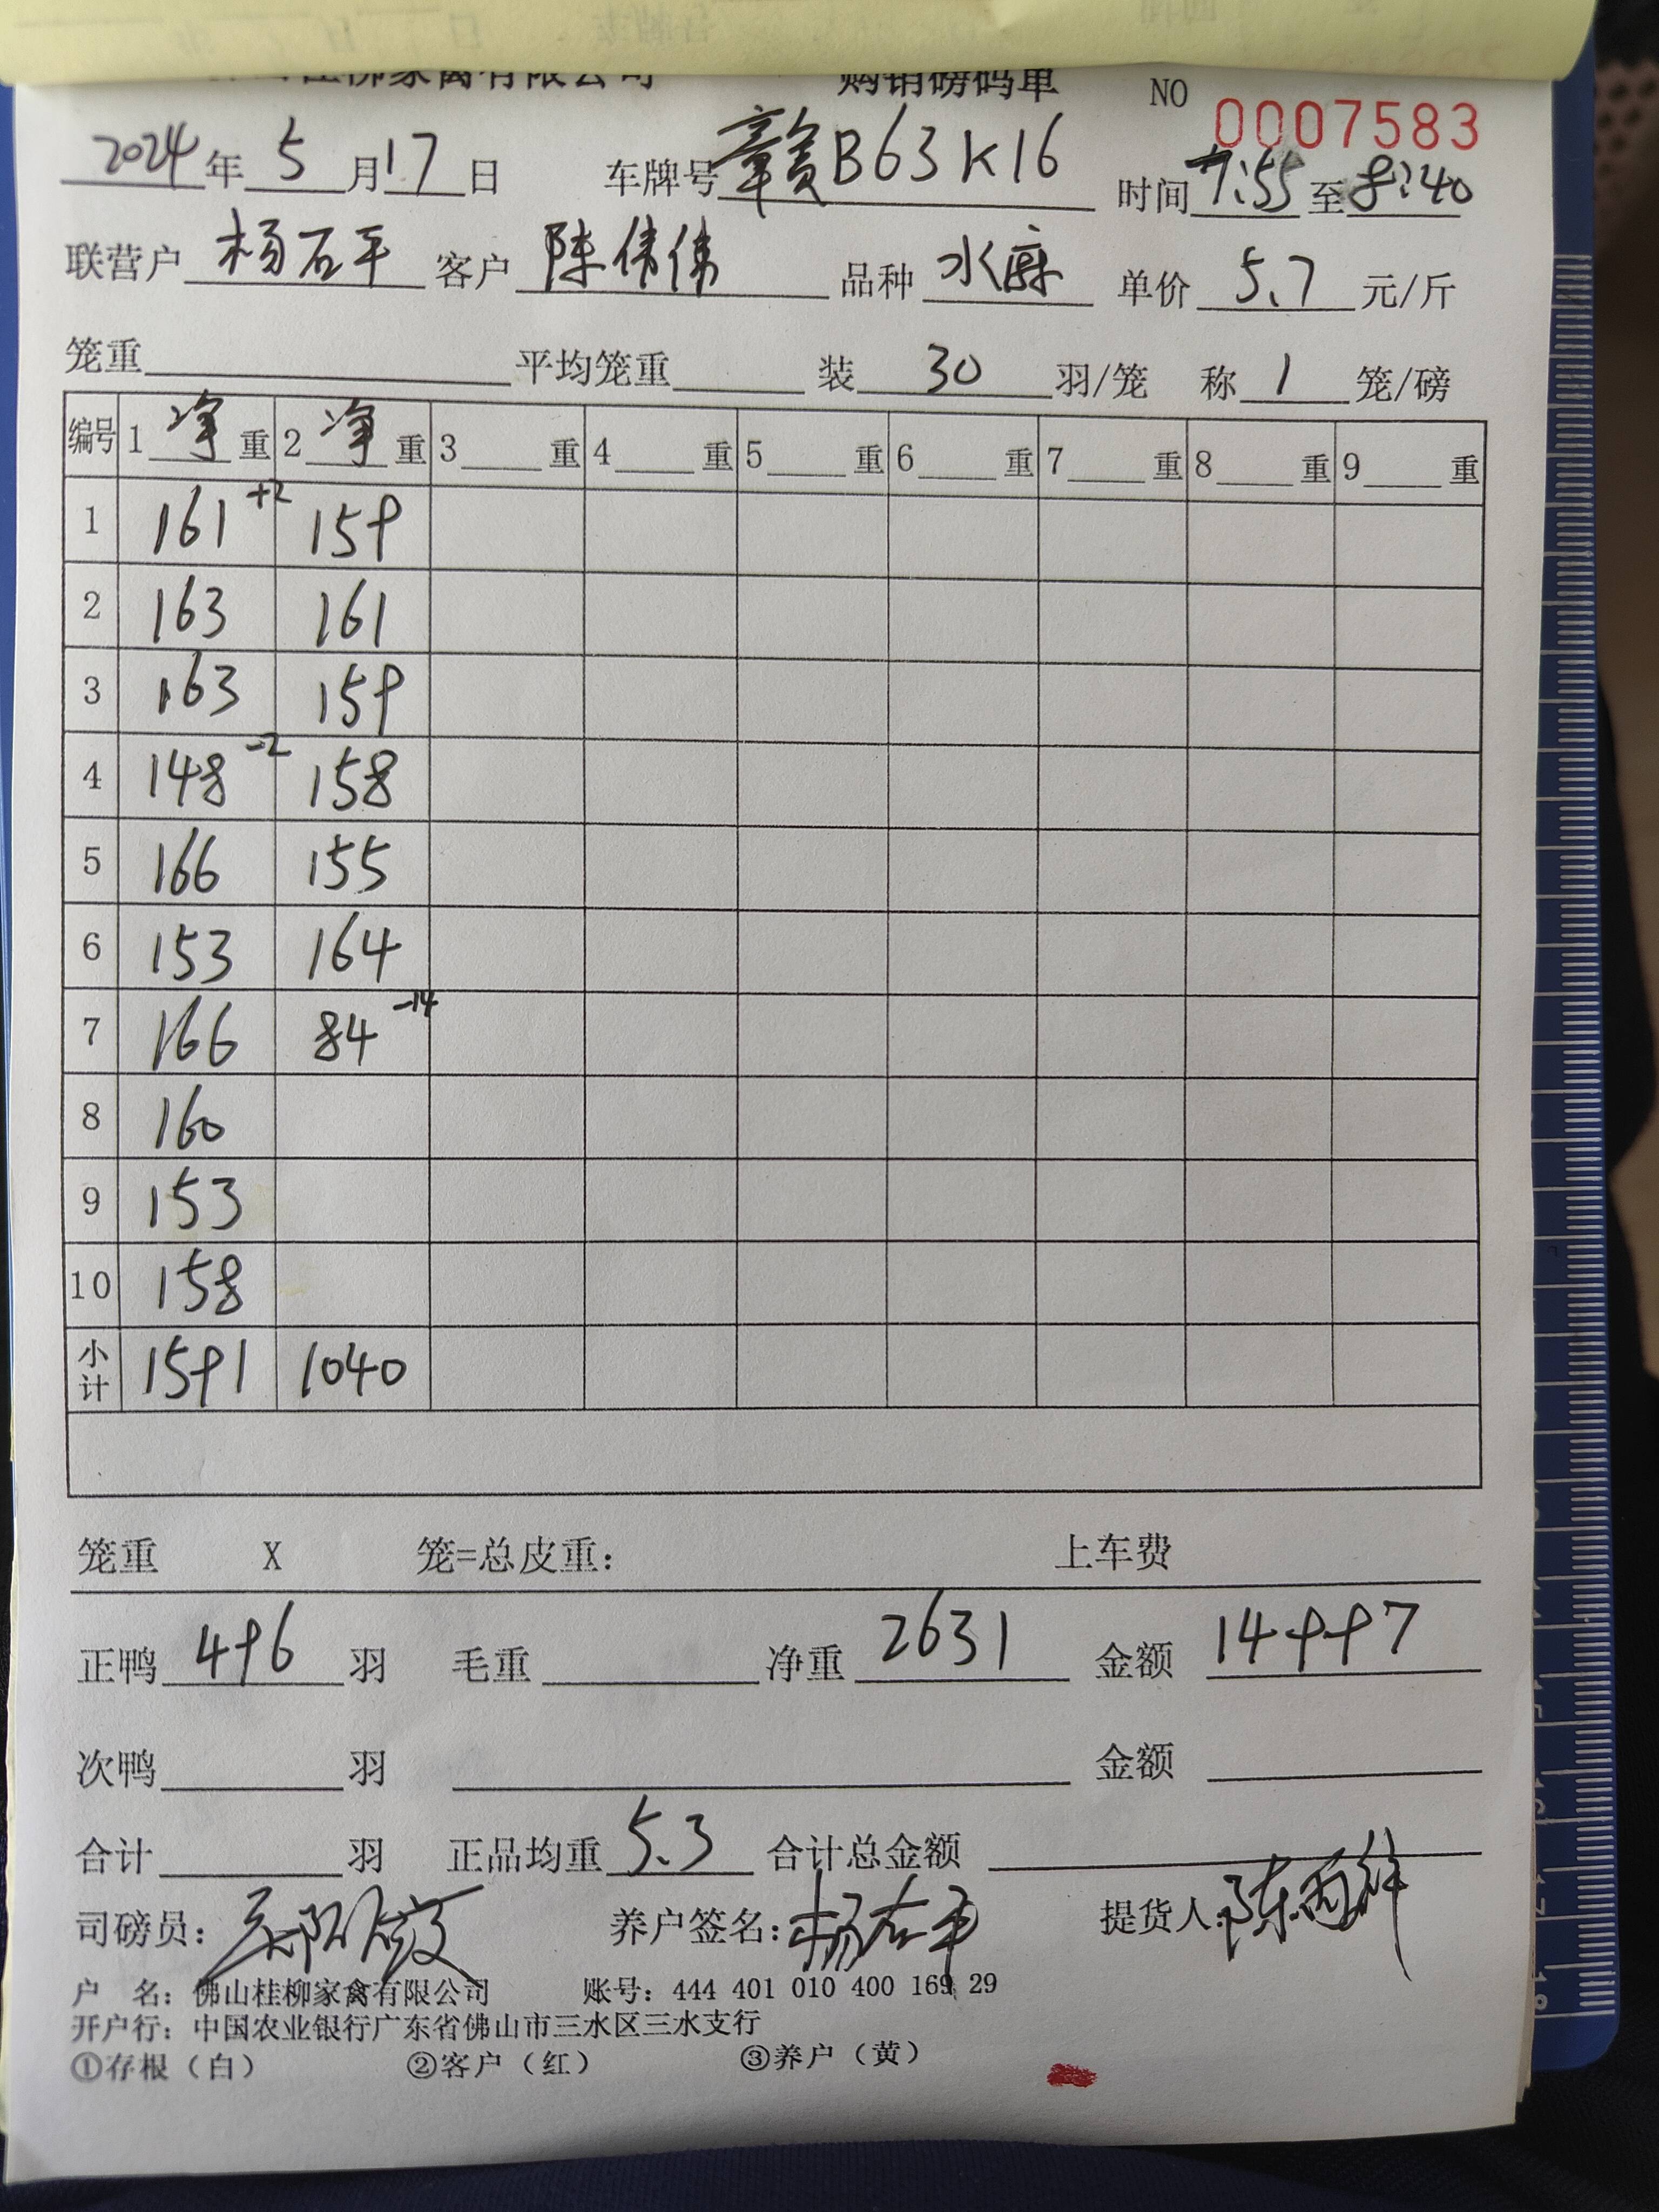 桂柳家禽有限公司 购销磅码单 NO 0007583
2024年5月17日 车牌号 赣B63K16 时间 7:55 至 8:40
联营户 杨石平 客户 陈伟伟 品种 水麻 单价 5.7 元/斤
笼重 平均笼重 装 30 羽/笼 称 1 笼/磅
编号 1 净 重 2 净 重 3 重 4 重 5 重 6 重 7 重 8 重 9 重
1 161 +2 159
2 163 161
3 163 159
4 148 -2 158
5 166 155
6 153 164
7 166 84 -14
8 160
9 153
10 158
小计 1591 1040
笼重 X 笼=总皮重: 上车费
正鸭 496 羽 毛重 净重 2631 金额 14997
次鸭 羽 金额
合计 羽 正品均重 5.3 合计总金额
司磅员: 养户签名: 杨石平 提货人:
户 名: 佛山桂柳家禽有限公司 账号: 444 401 010 400 169 29
开户行: 中国农业银行广东省佛山市三水区三水支行
①存根（白） ②客户（红） ③养户（黄）